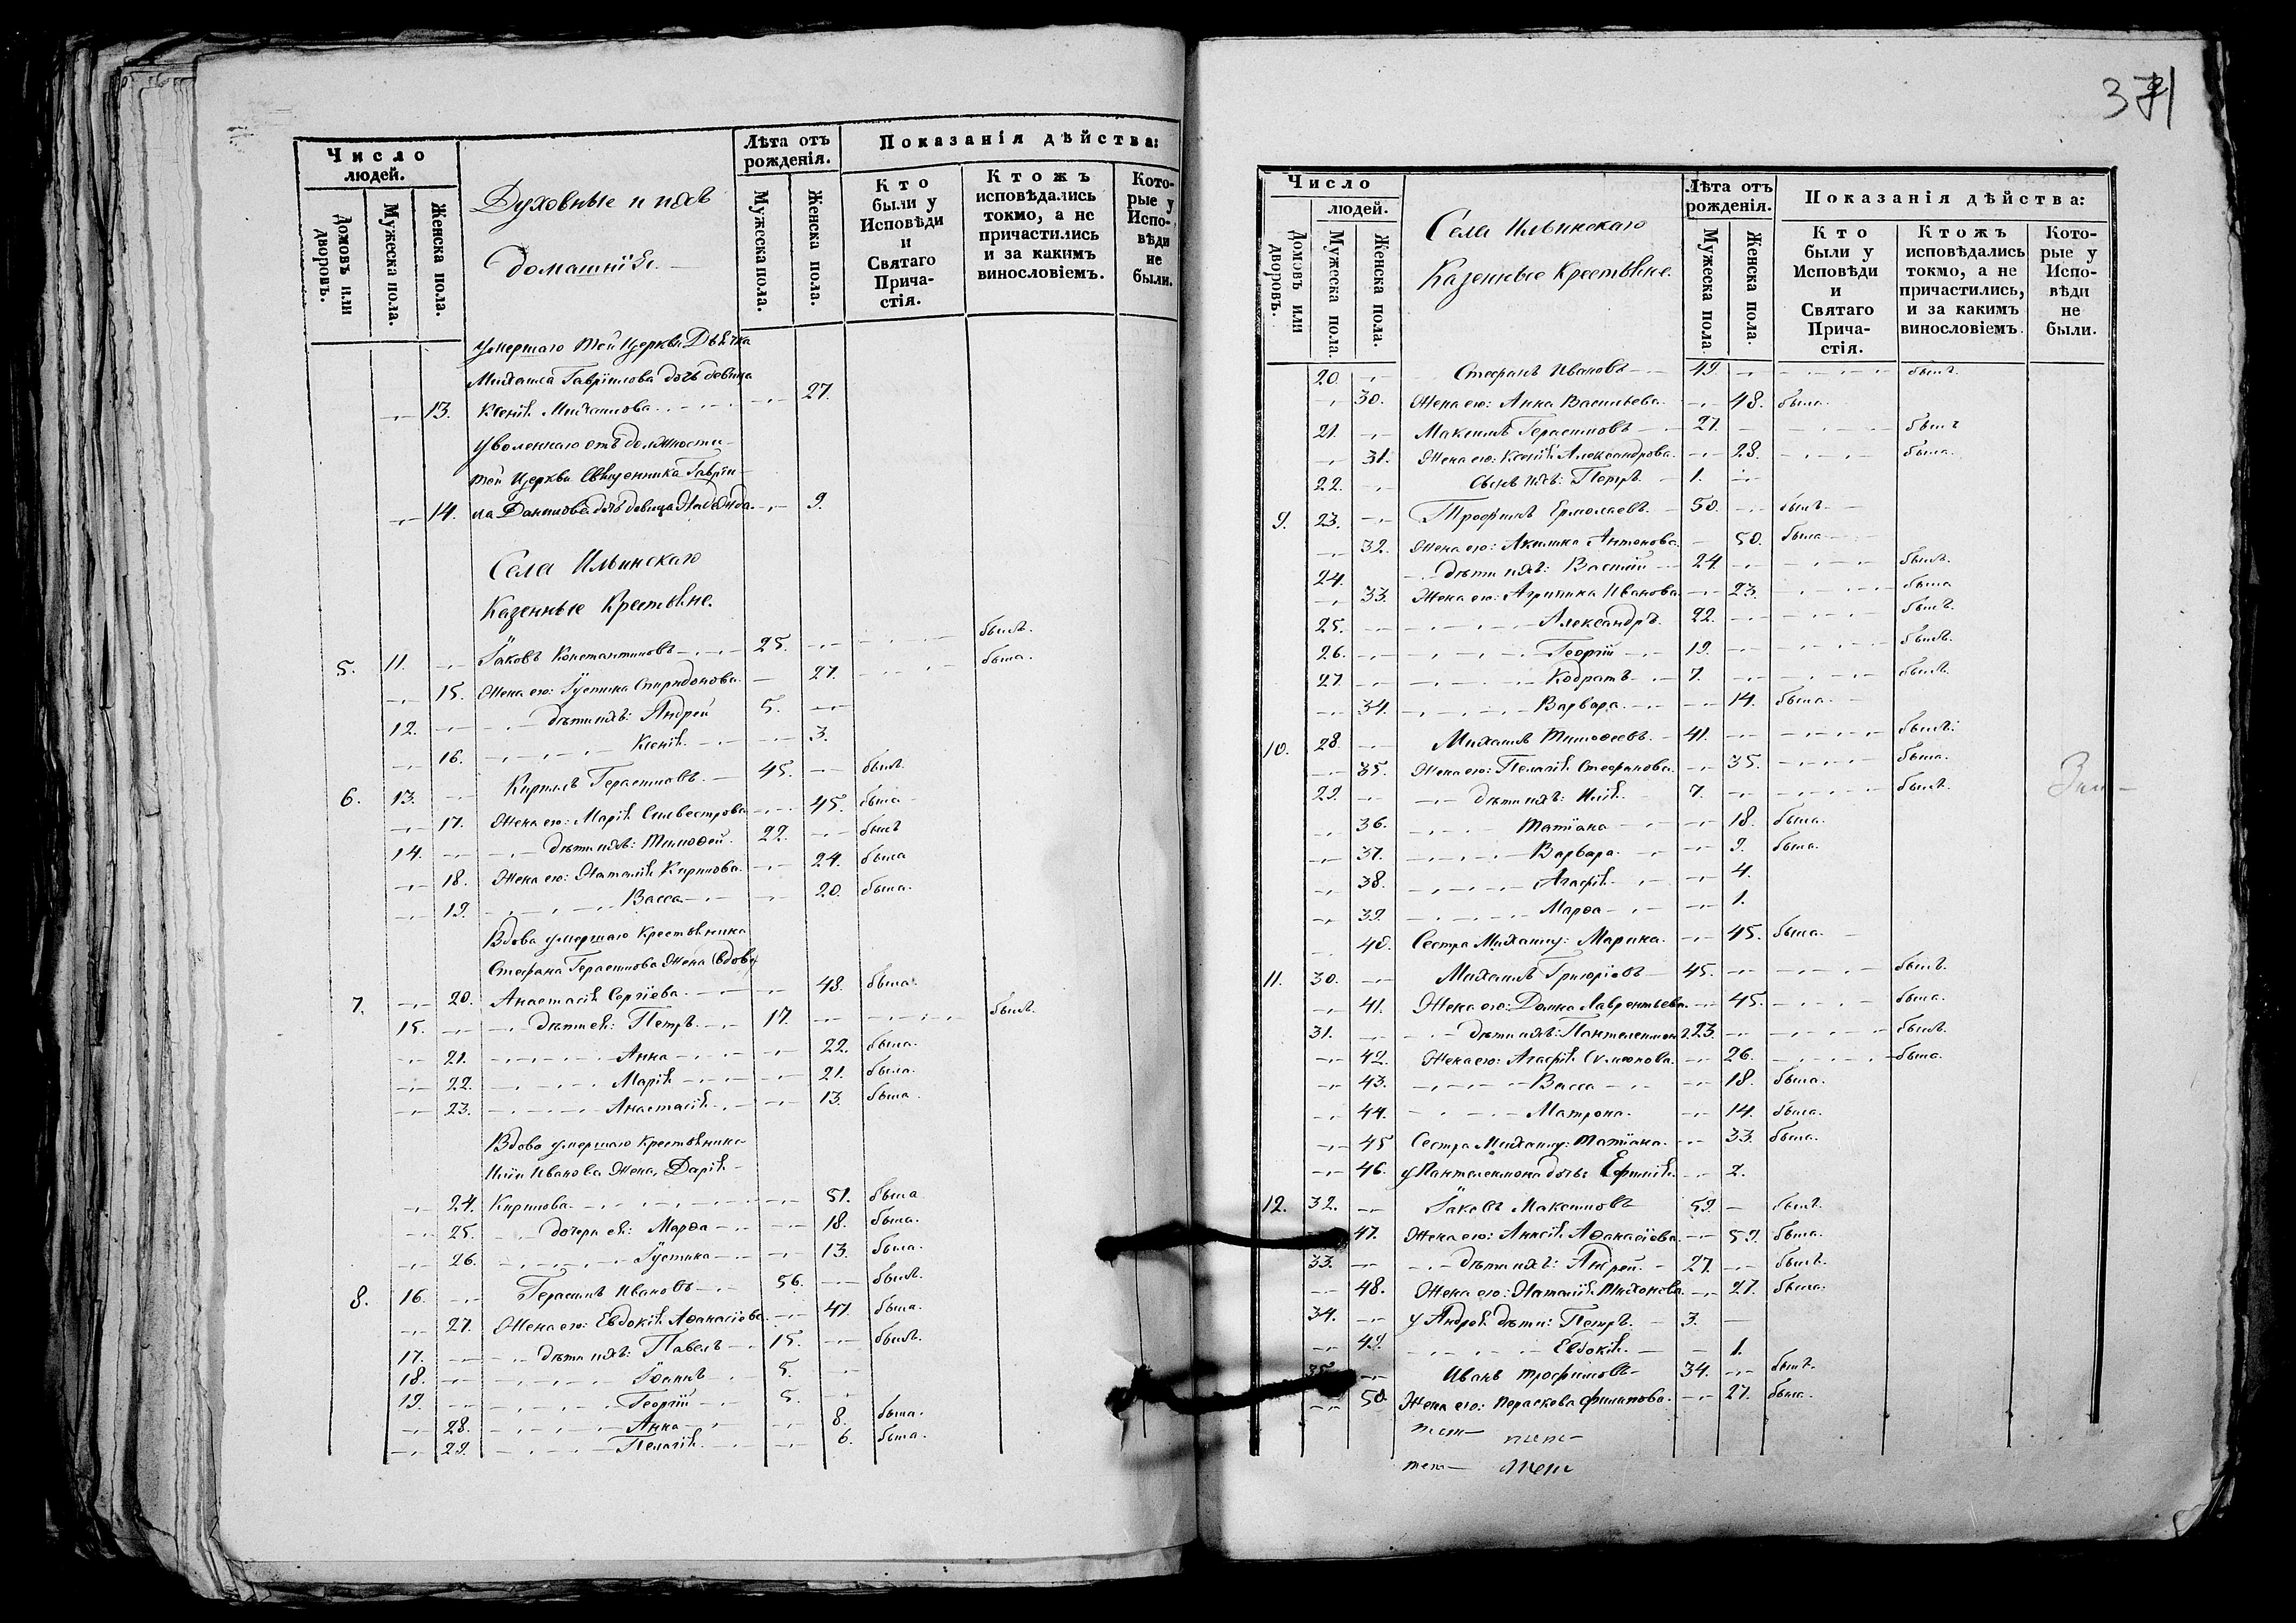 Число людей.
Домовъ или дворовъ.
Мужеска пола.
Женска пола.
Духовные и ихъ
домашнія.
Лѣта отъ рожденія.
Мужеска пола.
Женска пола.
Показанія дѣйства:
Кто были у Исповѣди и Святаго Прича-стія.
Ктожъ исповѣдались токмо, а не причастились и за какимъ винословіемъ.
Кото-рые у Испо-вѣди не были.
умершаго той Церкви Дьячка
Михаила Гаврїилова дочь девица
-,- 13. Ксенія Михаилова -,- 27.
уволеннаго отъ должности
той Церкви Священника Гаврїи-
-,- 14. ла Данилова дочь девица -,- 9.
Села Ильинскаго
Казенные Крестьяне.
5. 11. -,- Їаковъ Константиновъ 25. -,- былъ.
-,- 15. Жена его: Їустина Спиридонова. - 27. была.
12. -,- дѣти ихъ: Андрей 5. -,-
-,- 16. Ксенія. -,- 3.
6. 13. -,- Кирилъ Герасимовъ. 45. -,- былъ.
-,- 17. Жена его: Марія Силвестрова -,- 45. была
14. -,- дѣти ихъ: Тимофей. 22. -,- былъ
-,- 18. Жена его: Наталія Кирилова. -,- 24. была
-,- 19. Васса -,- 20. была.
Вдова умершаго Крестьянина
Стефана Герасимова Жена вдова
7. -,- 20. Анастасія Сергїева. -,- 48. была.
15. -,- дѣти ея: Петръ 17. -,- былъ.
-,- 21. Анна -,- 22. была.
-,- 22. Марія -,- 21. была.
-,- 23. Анастасія -,- 13. была.
Вдова умершаго Крестьянина
Иліи Иванова Жена, Дарія
-,- 24. Кирилова. -,- 51. была
-,- 25. дочери ея: Марѳа -,- 18. была.
-,- 26. Їустина -,- 13. была.
8. 16. -,- Герасимъ Ивановъ 56. -,- былъ.
-,- 27. Жена его: Евдокія Аѳанасїева. -,- 47. была.
17. -,- дѣти ихъ: Павелъ 15. -,- былъ.
18. -,- Їоаннъ 5. -,-
19. -,- Георгій 5. -,-
-,- 28. Анна -,- 8. была.
-,- 29. Пелагія. -,- 6. была.
371
Число людей.
Домовъ или дворовъ.
Мужеска пола.
Женска пола.
Села Ильинскаго
Казенные Крестьяне.
Лѣта отъ рожденія.
Мужеска пола.
Женска пола.
Показанія дѣйства:
Кто были у Исповѣди и Святаго Прича-стія.
Ктожъ исповѣдались токмо, а не причастились, и за какимъ винословіемъ.
Кото-рые у Испо-вѣди не были.
20. -,- Стефанъ Ивановъ 49. -,- былъ.
-,- 30. Жена его: Анна Васильева. -,- 48. была.
21. -,- Максимъ Герасимовъ 27. - былъ
-,- 31. Жена его: Ксенія Александрова. -,- 28. была.
22. -,- Сынъ ихъ: Петръ. 1. -,-
9. 23. -,- Трофимъ Ермолаевъ. 50. -,- былъ
-,- 32. Жена его: Акилина Антонова. - 50. была
24. дѣти ихъ: Василій 24. -,- былъ.
-,- 33. Жена его: Агрипина Иванова -,- 23. была
25. -,- Александръ. 22. -,- былъ.
26. -,- Георгій 19. -,- былъ.
27. -,- Кодратъ 7. -,- былъ.
-,- 34. Варвара. -,- 14. была.
10. 28. -,- Михаилъ Тимофеевъ. 41. -,- былъ.
-,- 35. Жена его: Пелагія Стефанова. -,- 35. была.
29. -,- дѣти ихъ: Илія 7. -,- былъ.
-,- 36. Татїана -,- 18. была.
-,- 37. Варвара. -,- 9. была.
-,- 38. Агафія. -,- 4.
-,- 39. Марѳа -,- 1.
-,- 40. Сестра Михаилу: Марина. -,- 45. была.
11. 30. -,- Михаилъ Григорїевъ 45. -,- былъ.
-,- 41. Жена его: Домна Лаврентьева -,- 45. была.
31. -,- дѣти ихъ: Пантелеимонъ 23. -,- былъ.
-,- 42. Жена его: Агафія Симеонова. -,- 26. была.
-,- 43. Васса -,- 18. была.
-,- 44. Матрона. -,- 14. была.
-,- 45 Сестра Михаилу: Татїана. -,- 33. была.
-,- 46. у Пантелеимона дочь: Ефимія. -,- 2.
12. 32. -,- Їаковъ Максимовъ 59. - былъ.
47. Жена его: Анисія Аѳанасїева -,- 59. была.
33. -,- дѣти ихъ: Андрей. 27. -,- былъ.
-,- 48. Жена его: Наталія Тихонова. -,- 27. была.
34. -,- у Андрея дѣти: Петръ. 3. -
-,- 49. Евдокія. - 1.
35. -,- Иванъ Трофимовъ 34. -,- былъ.
-,- 50. Жена его: Параскева Филипова. -,- 27. была.